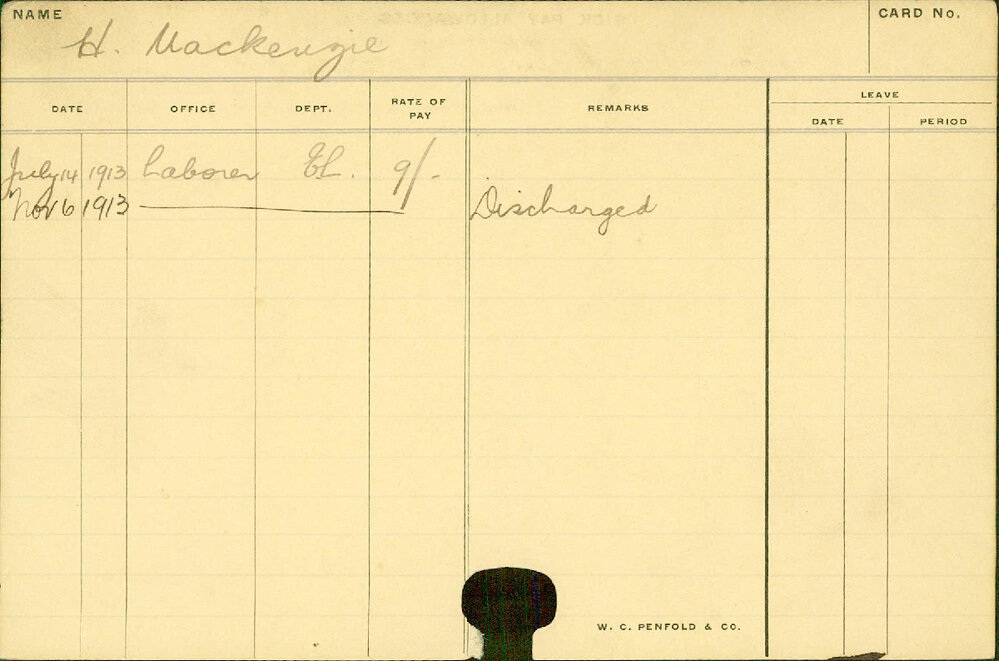 NAME
H. Mackenzie
CARD No.
DATE OFFICE DEPT. RATE OF PAY REMARKS LEAVE
DATE PERIOD
July 14 1913 Laborer El. 9/-
Nov 6 1913 Discharged
W. C. PENFOLD & CO.